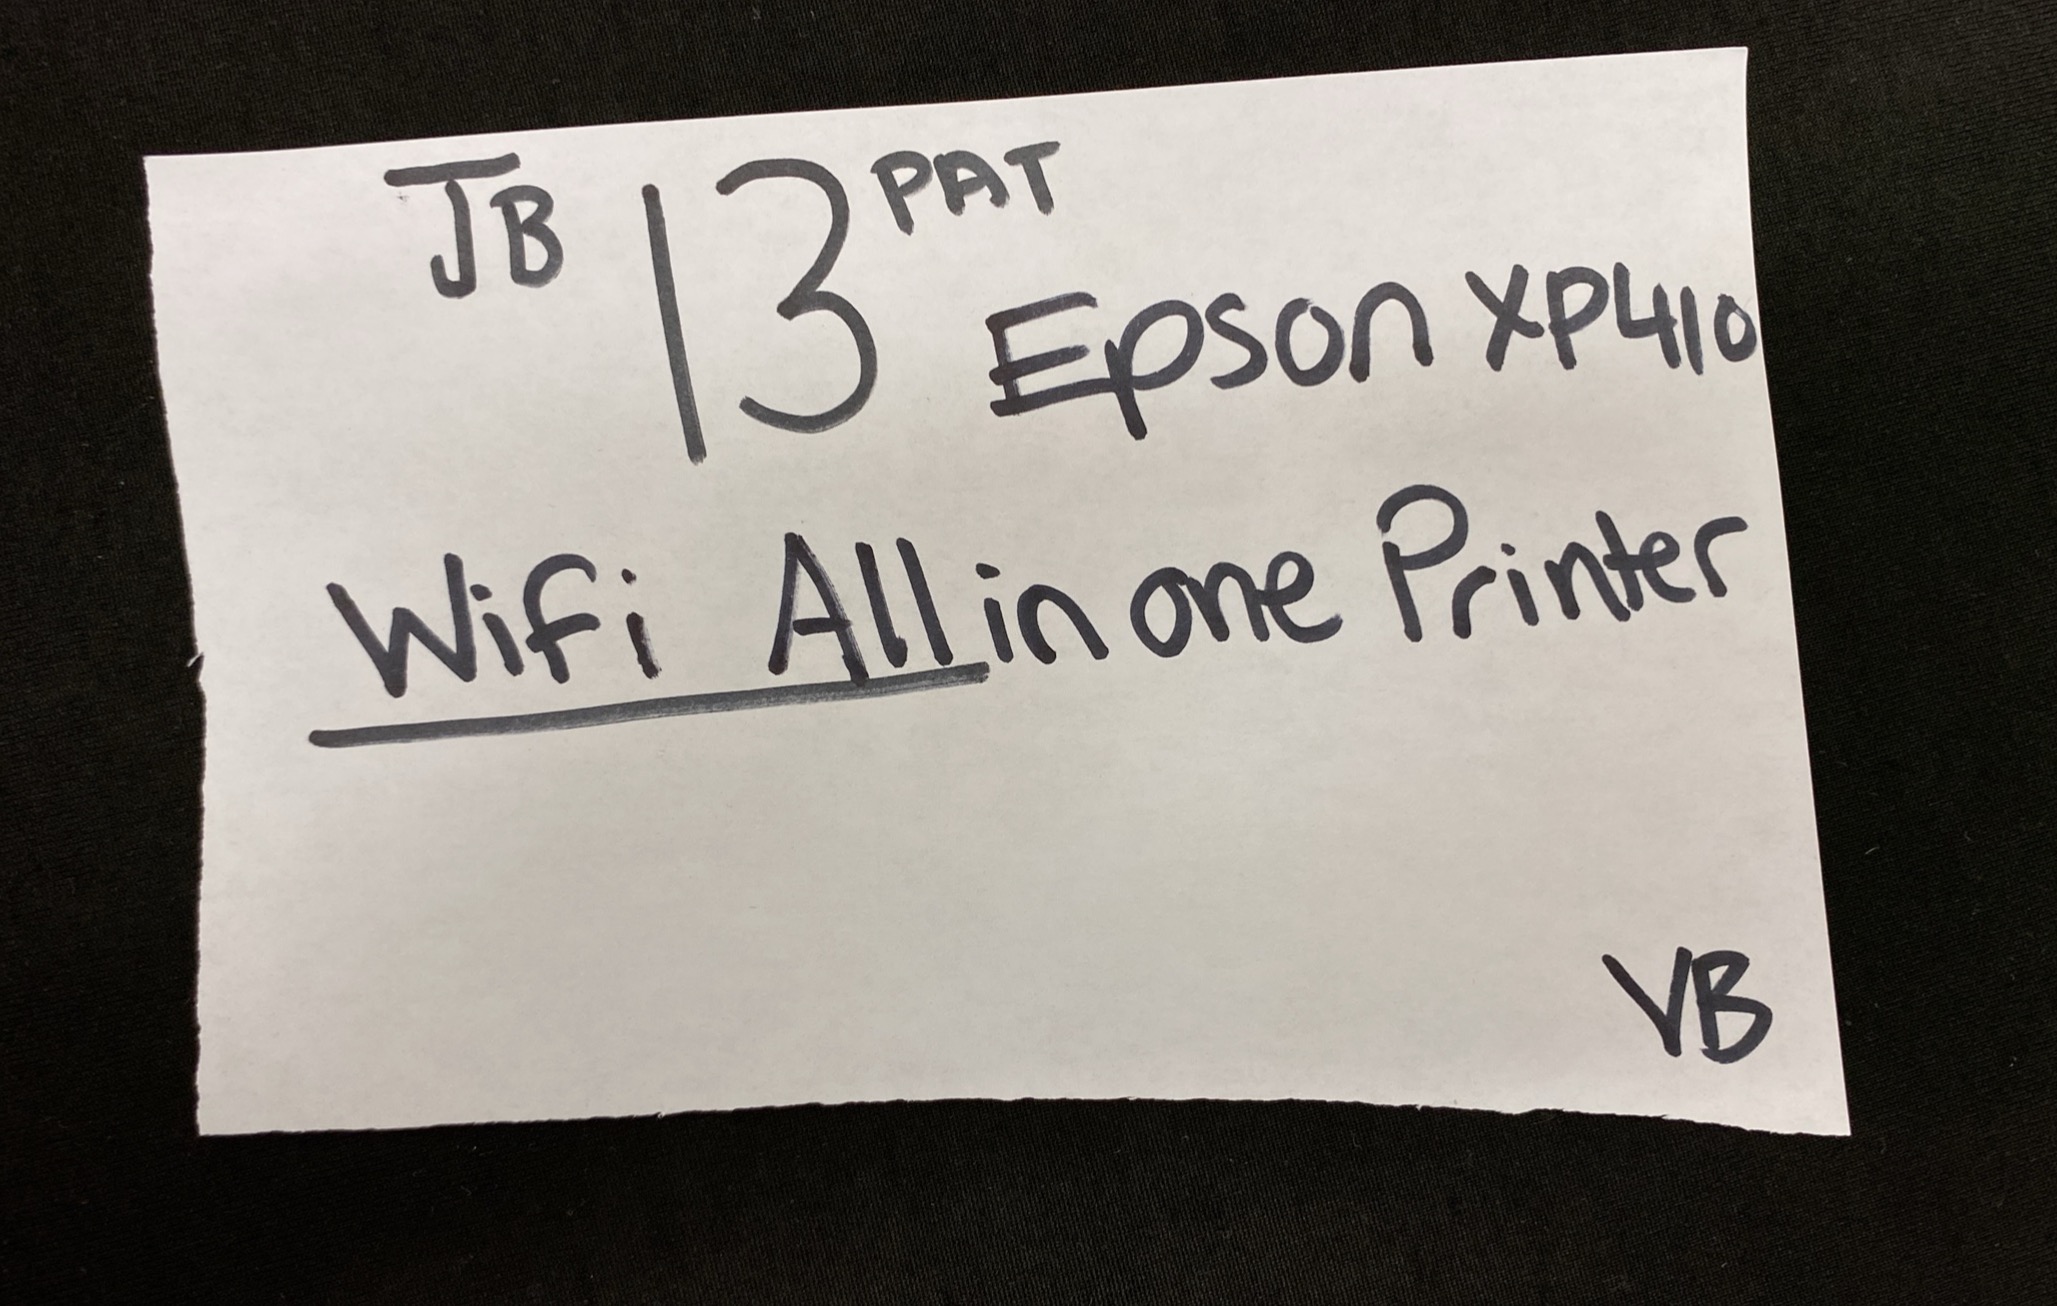 JB 13 PAT
Epson XP410
Wifi All in one Printer
VB